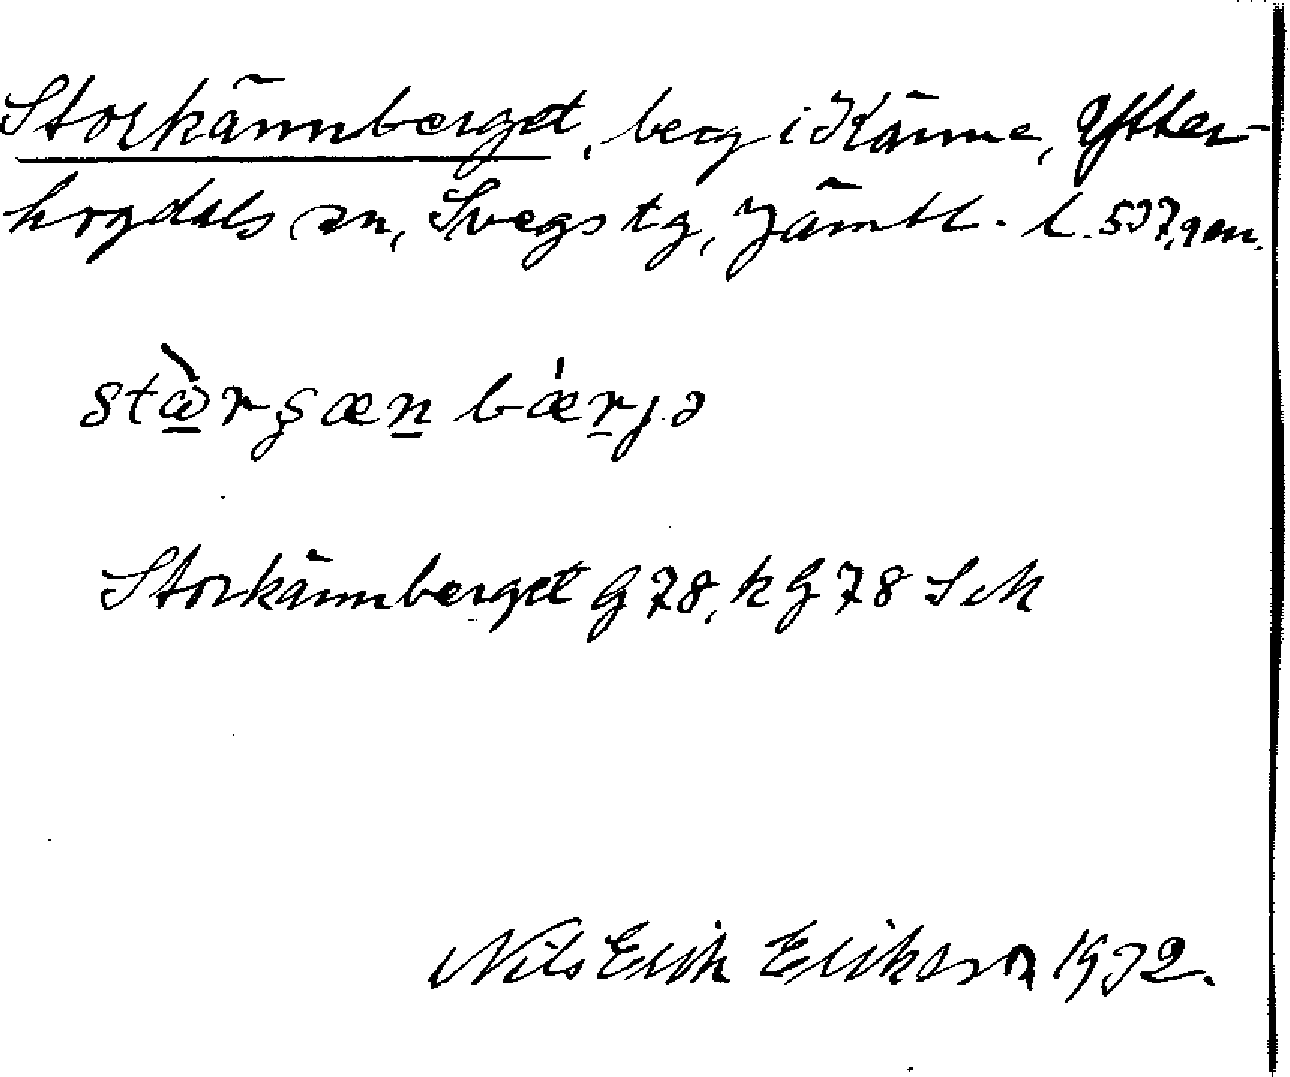 Storkännberget, berg i Känne, Ytter-
hogdals sn, Svegs tg, Jämtl. l.
stɷ̀rgæn bǽrjə
Storkännberget G 78, k G 78 Sek
Nils Erik Eriksson 1972.